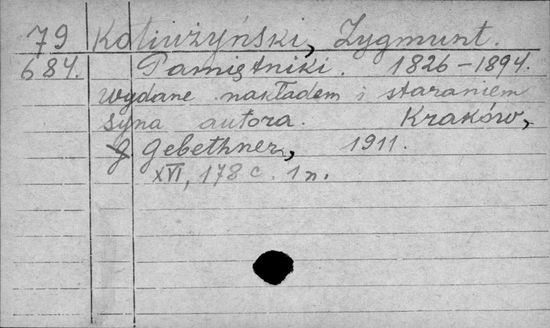 79 Kotiużyński, Zygmunt.
684. Pamiętniki. 1826-1894.
wydane nakładem i staraniem
syna autora. Kraków,
g Gebethner, 1911.
XVI, 178 c. 1 n.